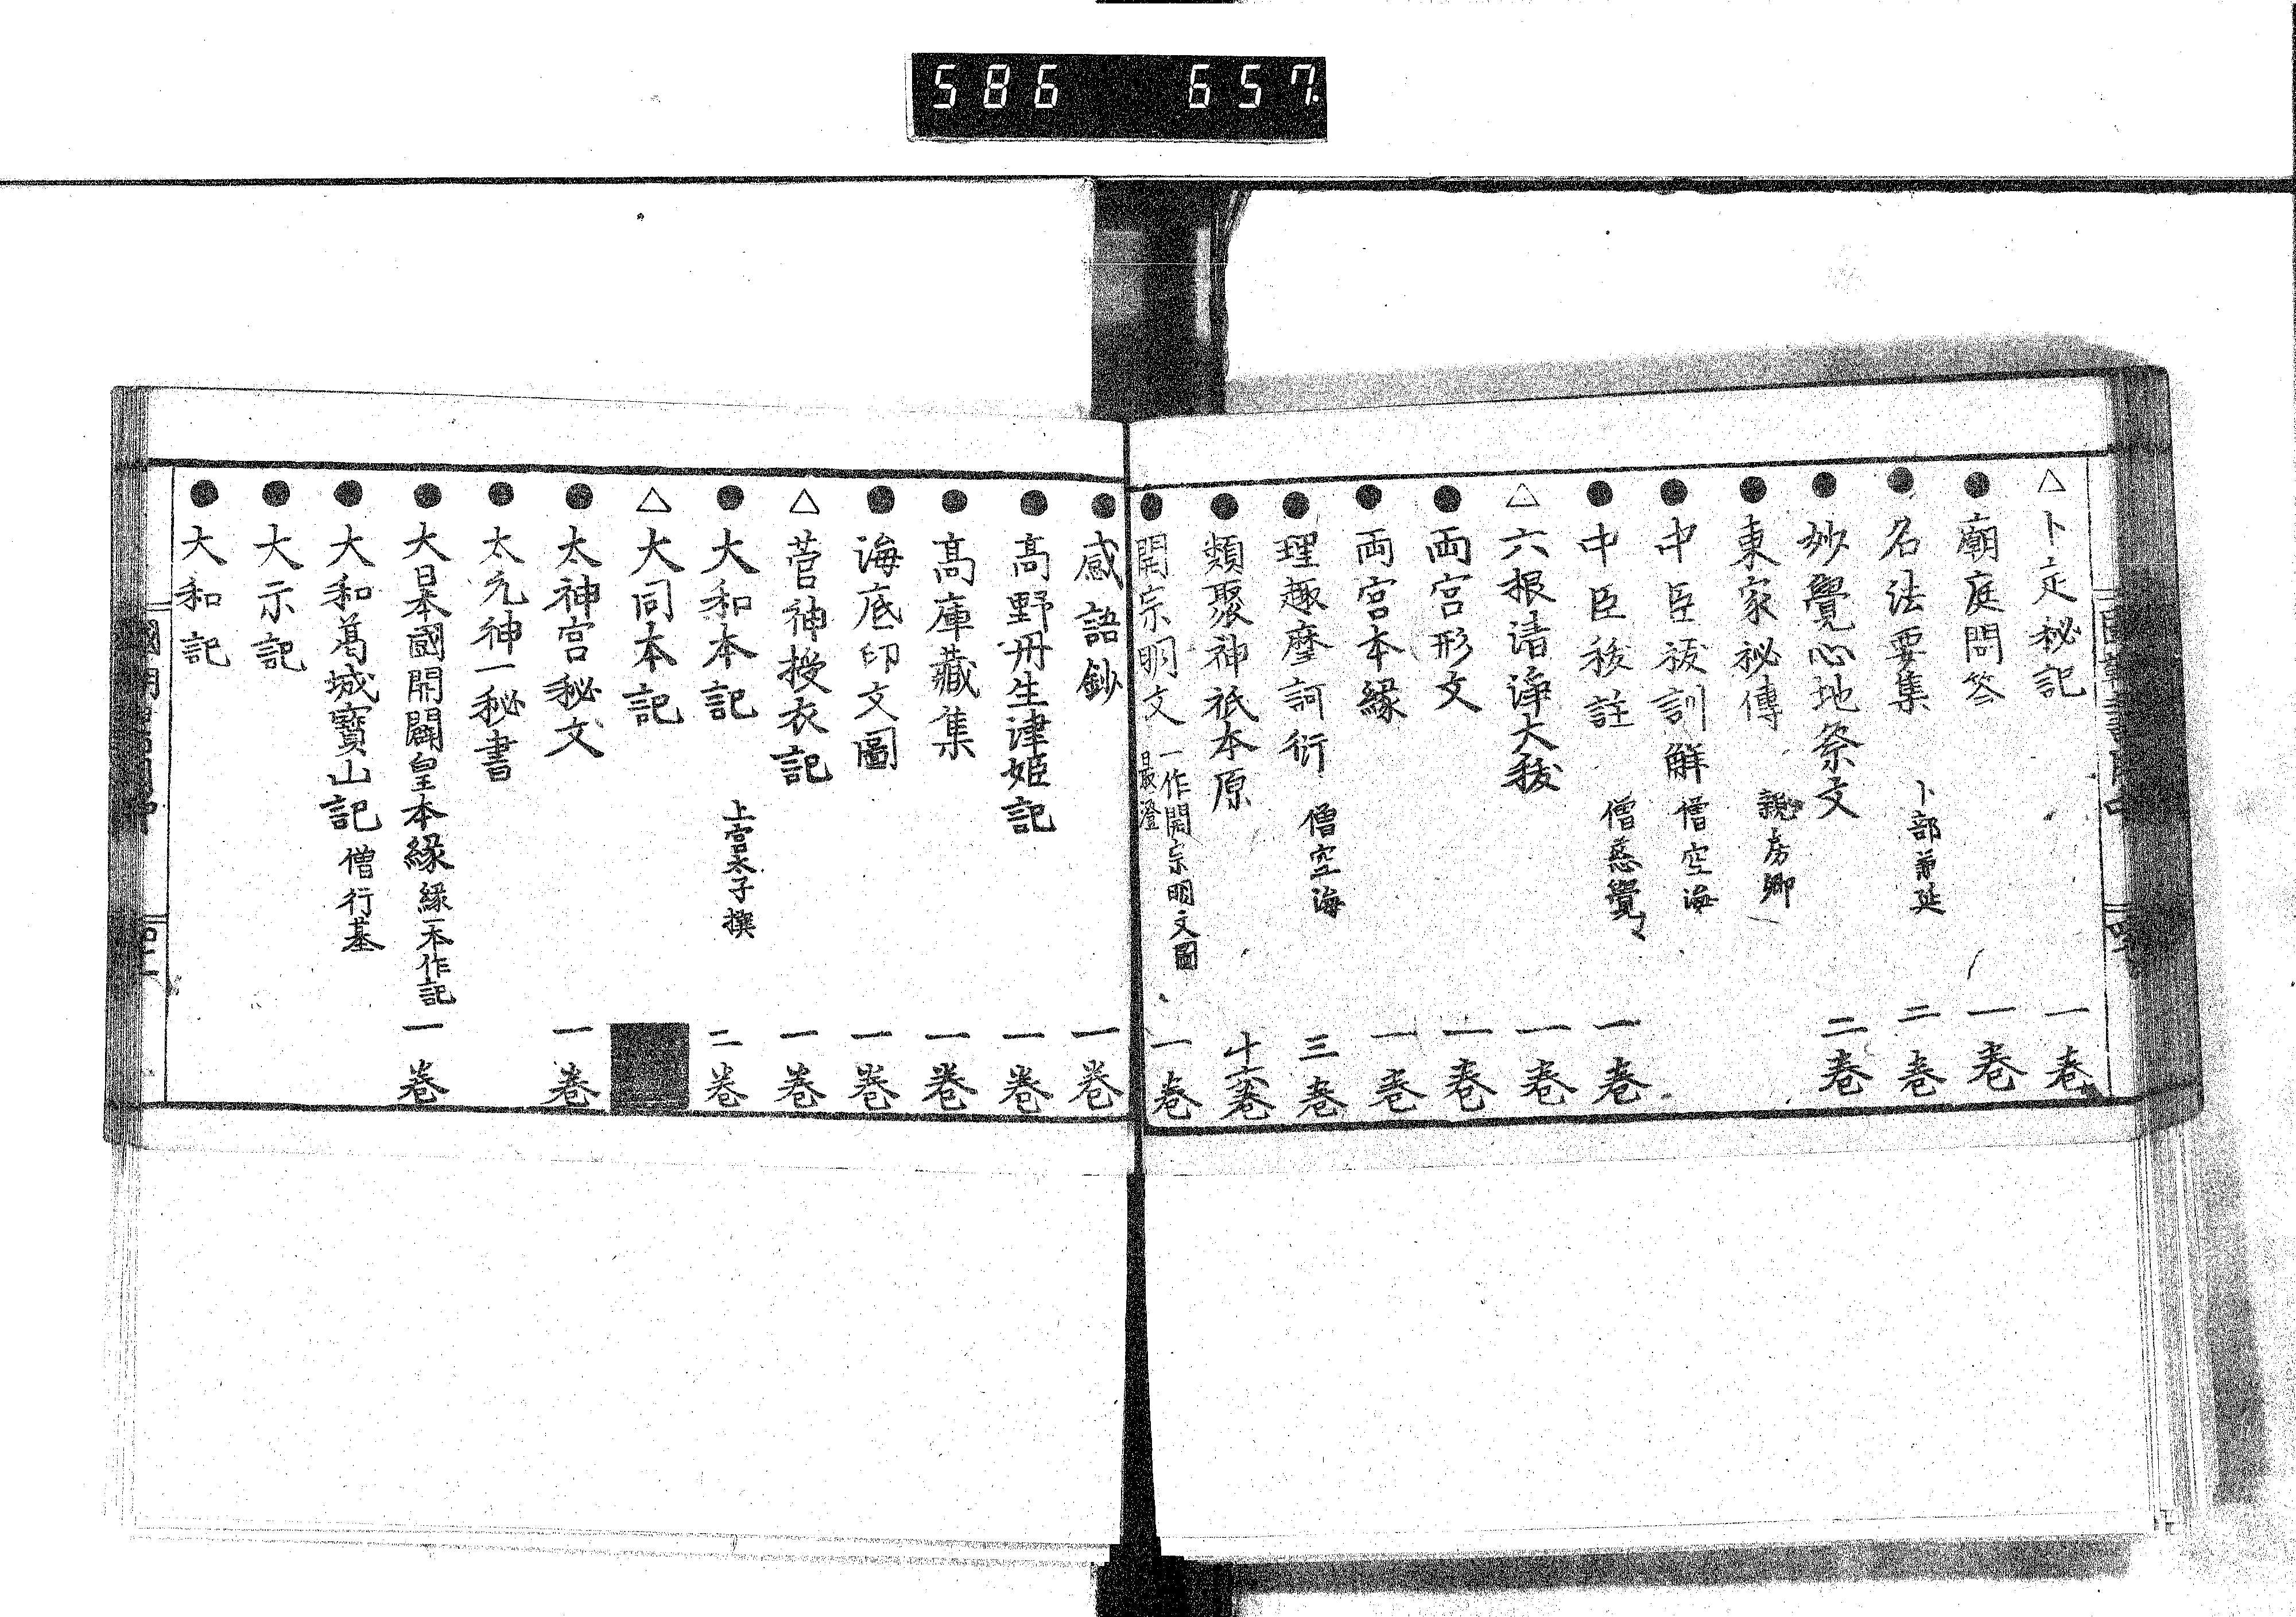 586 657
△卜定秘記 一巻
●廟庭問答 一巻
●名法要集 卜部兼延 二巻
●妙覺心地祭文 二巻
●東家秘傳 親房卿
●中臣祓訓解 僧空海
●中臣祓註 僧慈覺 一巻
△六根清浄大祓 一巻
●両宮形文 一巻
●両宮本縁 一巻
●理趣摩訶衍 僧空海 三巻
●類聚神祇本原 十六巻
●開宗明文 一作開宗明文圖 最澄 一巻
●感語鈔 一巻
●高野丹生津姫記 一巻
●高庫藏集 一巻
●海底印文圖 一巻
△菅神授衣記 一巻
●大和本記 上宮太子撰 二巻
△大同本記
●太神宮秘文 一巻
●太元神一秘書
●大日本國開闢皇本縁 縁一本作記 一巻
●大和葛城寶山記 僧行基
●大示記
●大和記